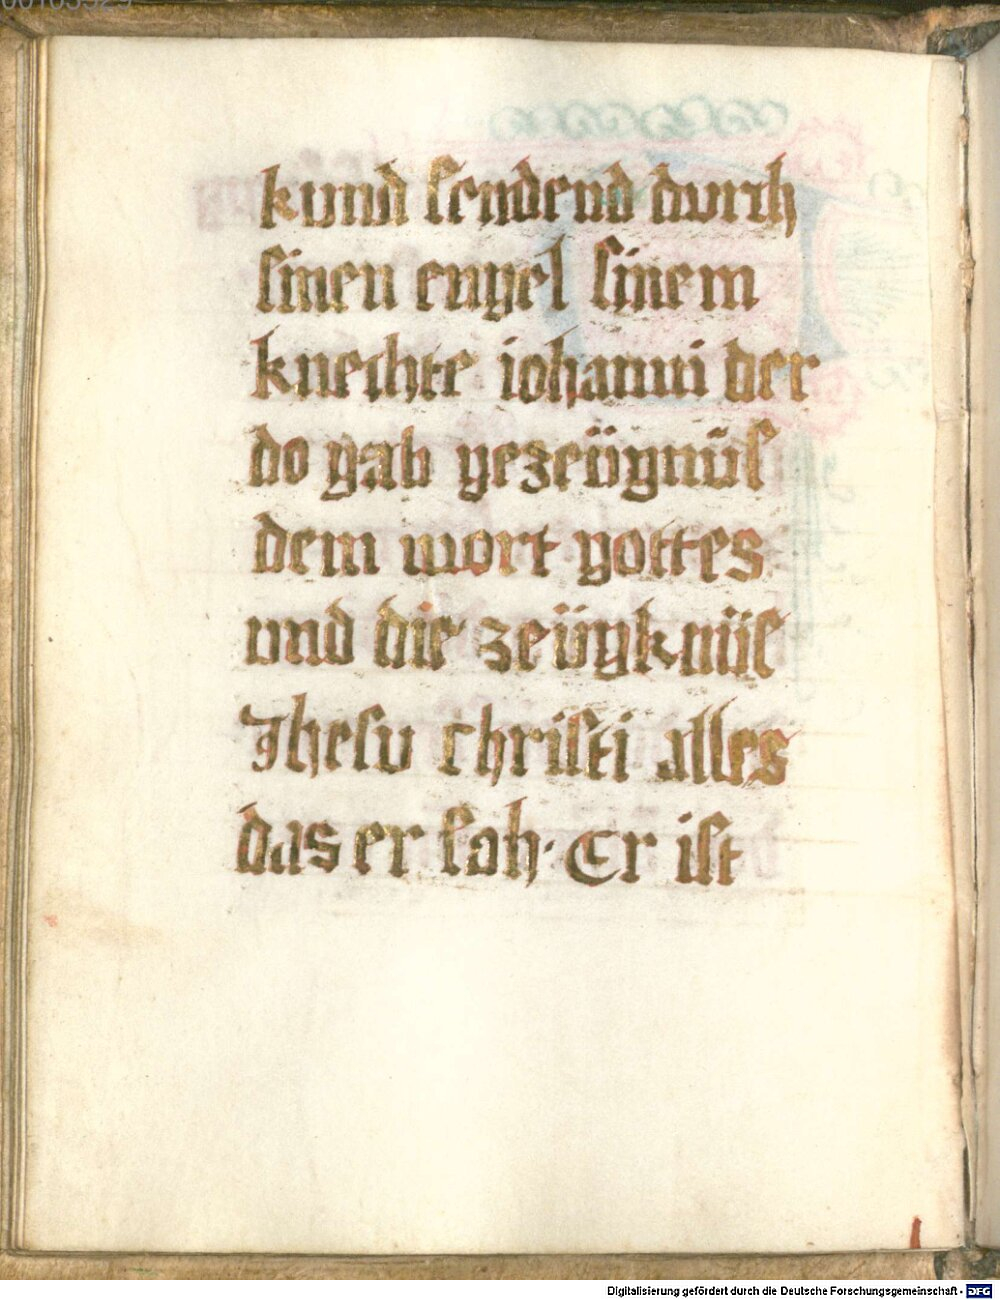 kund sendend durch
sinen engel sinem
knechte iohanni der
do gab gezeügnüs
dem wort gottes
vnd die zeügknüs
Jhesu christi alles
das er sah. Er ist
Digitalisierung gefördert durch die Deutsche Forschungsgemeinschaft - DFG